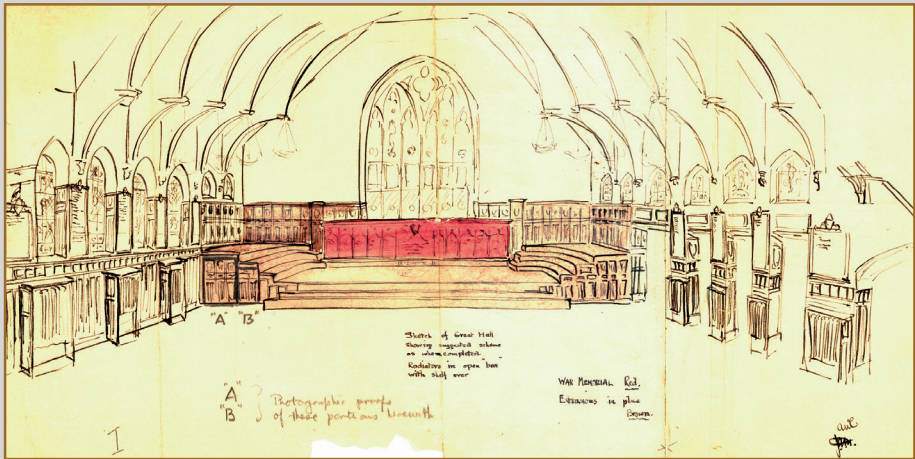 "A" "B"
Sketch of Great Hall
showing suggested scheme
as when completed.
Radiators in open "box"
with shelf over
"A"
"B"
Photographic proofs
of these portions herewith
WAR MEMORIAL Red.
Extensions in place
Brown.